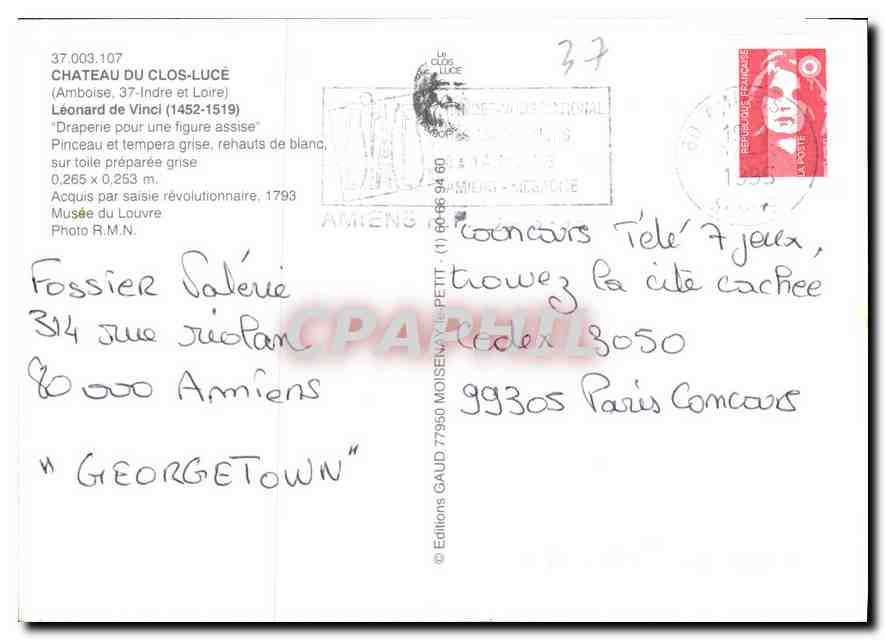 37.003.107
CHATEAU DU CLOS-LUCÉ
(Amboise, 37-Indre et Loire)
Léonard de Vinci (1452-1519)
"Draperie pour une figure assise"
Pinceau et tempera grise, rehauts de blanc,
sur toile préparée grise
0,265 x 0,253 m.
Acquis par saisie révolutionnaire, 1793
Musée du Louvre
Photo R.M.N.
Fossier Valérie
314 rue riolan
80 000 Amiens
"GEORGETOWN"
© Editions GAUD 77950 MOISENAY-le-PETIT - (1) 60 66 94 60
Le
CLOS
LUCE
37
AMIENS
REPUBLIQUE FRANÇAISE
LA POSTE
1995
concours Télé 7 jeux,
trouvez la cité cachée
Codex 3050
99305 Paris Concours
CPAPHIL